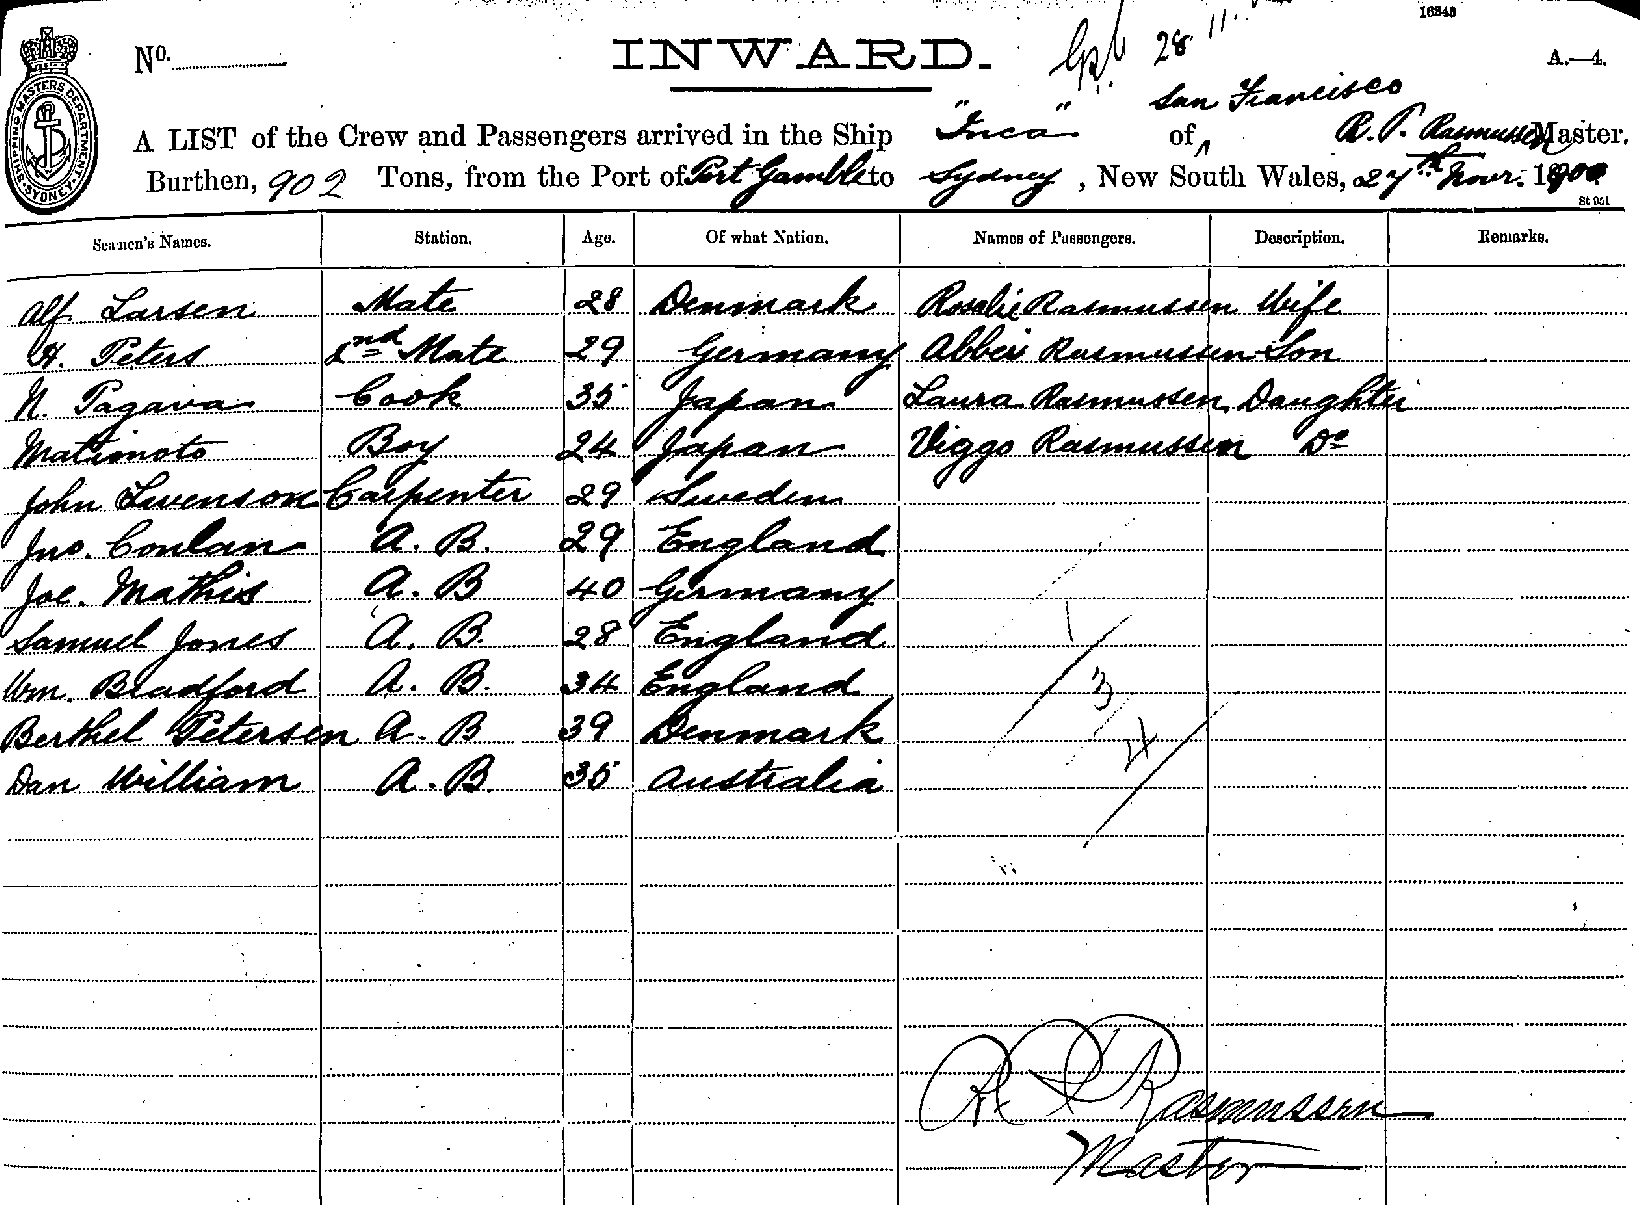 16343
No.
INWARD.
28 11
A.—4.
San Francisco
A LIST of the Crew and Passengers arrived in the Ship "Inca" of R. P. Rasmussen Master.
Burthen, 902 Tons, from the Port of Port Gamble to Sydney, New South Wales, 27th Novr. 1900
SHIPPING MASTERS DEPARTMENT SYDNEY
Seamen's Names. Station. Age. Of what Nation. Names of Passengers. Description. Remarks.
Alf Larsen Mate 28 Denmark Rosalie Rasmussen Wife
H. Peters 2nd Mate 29 Germany Rasmussen Son
N. Pagava Cook 35 Japan Laura Rasmussen Daughter
Matimoto Boy 24 Japan Viggo Rasmussen Do
John Swenson Carpenter 29 Sweden
Jno. Conlan A. B. 29 England
Joe. Mathis A. B 40 Germany
Samuel Jones A. B. 28 England
Wm. Bradford A. B. 34 England
Berthel Petersen A. B 39 Denmark
Dan William A. B. 35 Australia
1
3
4
R P Rasmussen
Master